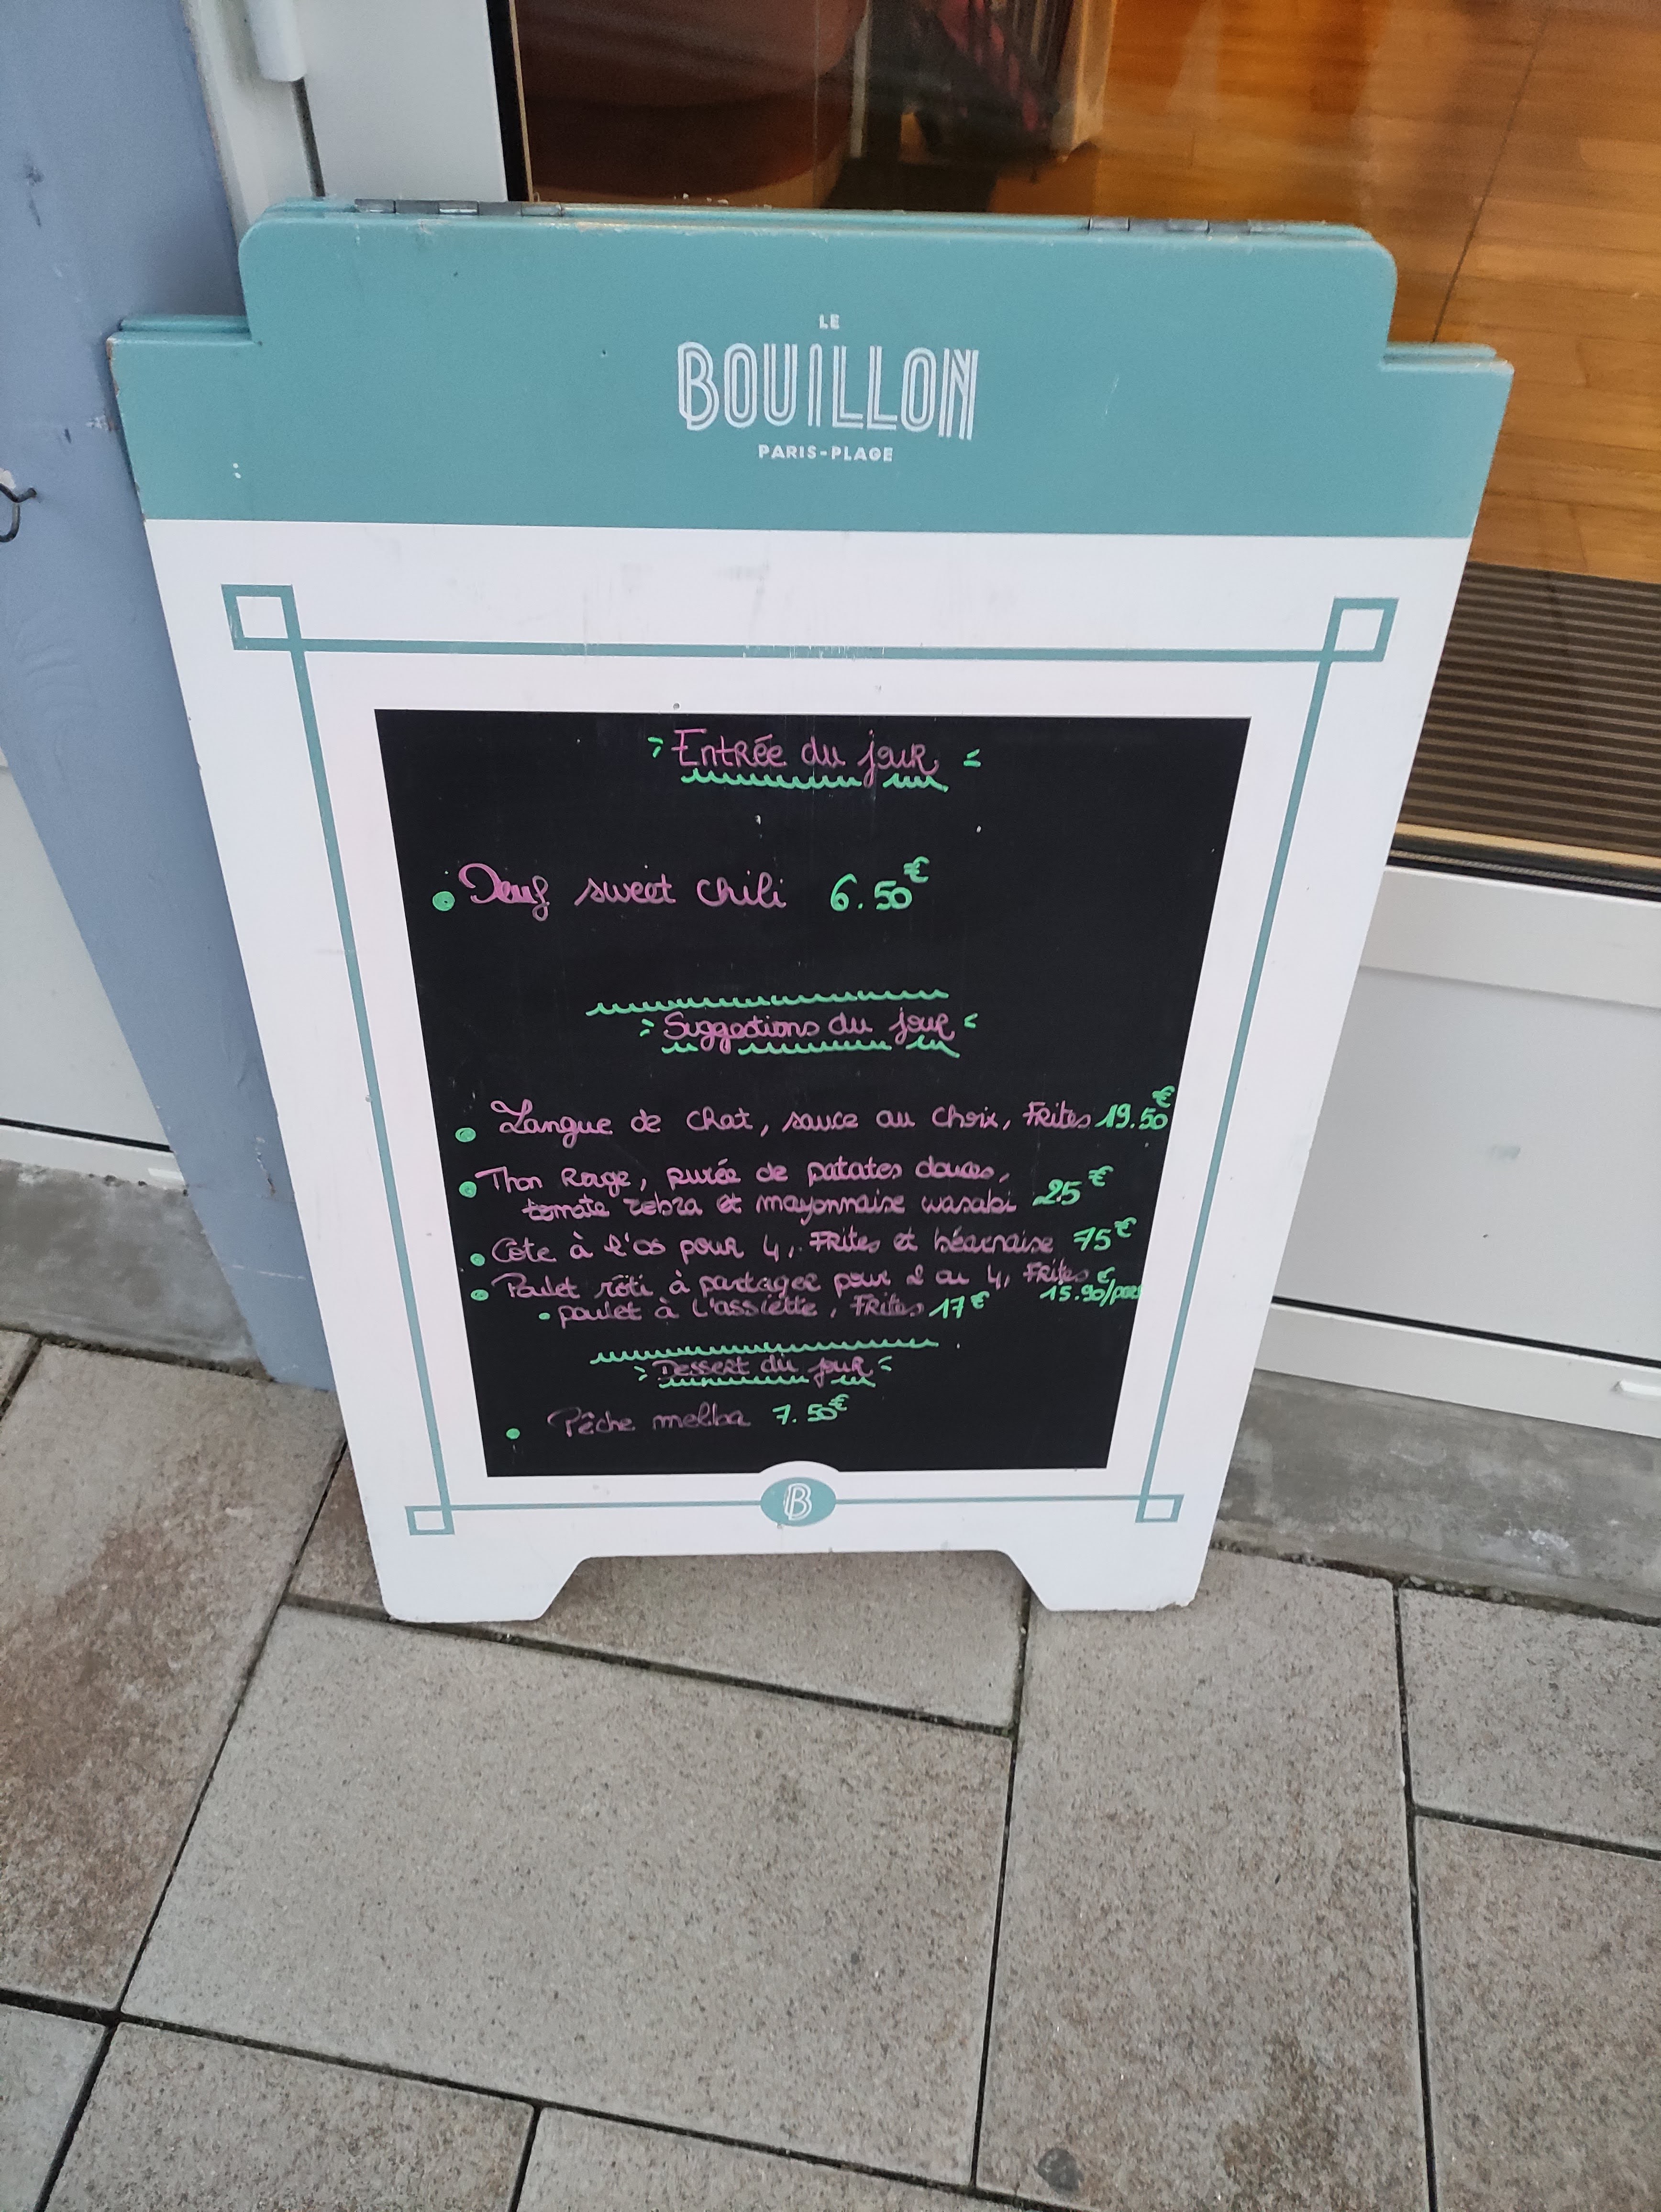 LE
BOUILLON
PARIS-PLAGE
Entrée du jour
Oeuf sweet chili 6.50€
Suggestions du jour
Langue de chat, sauce au choix, Frites 19.50€
Thon Rouge, purée de patates douces,
tomate zebra et mayonnaise wasabi 25€
Côte à l'os pour 4, Frites et béarnaise 75€
Poulet rôti à partager pour 2 ou 4, Frites €
15.90/pers
poulet à l'assiette, Frites 17€
Dessert du jour
Pêche melba 7.50€
B